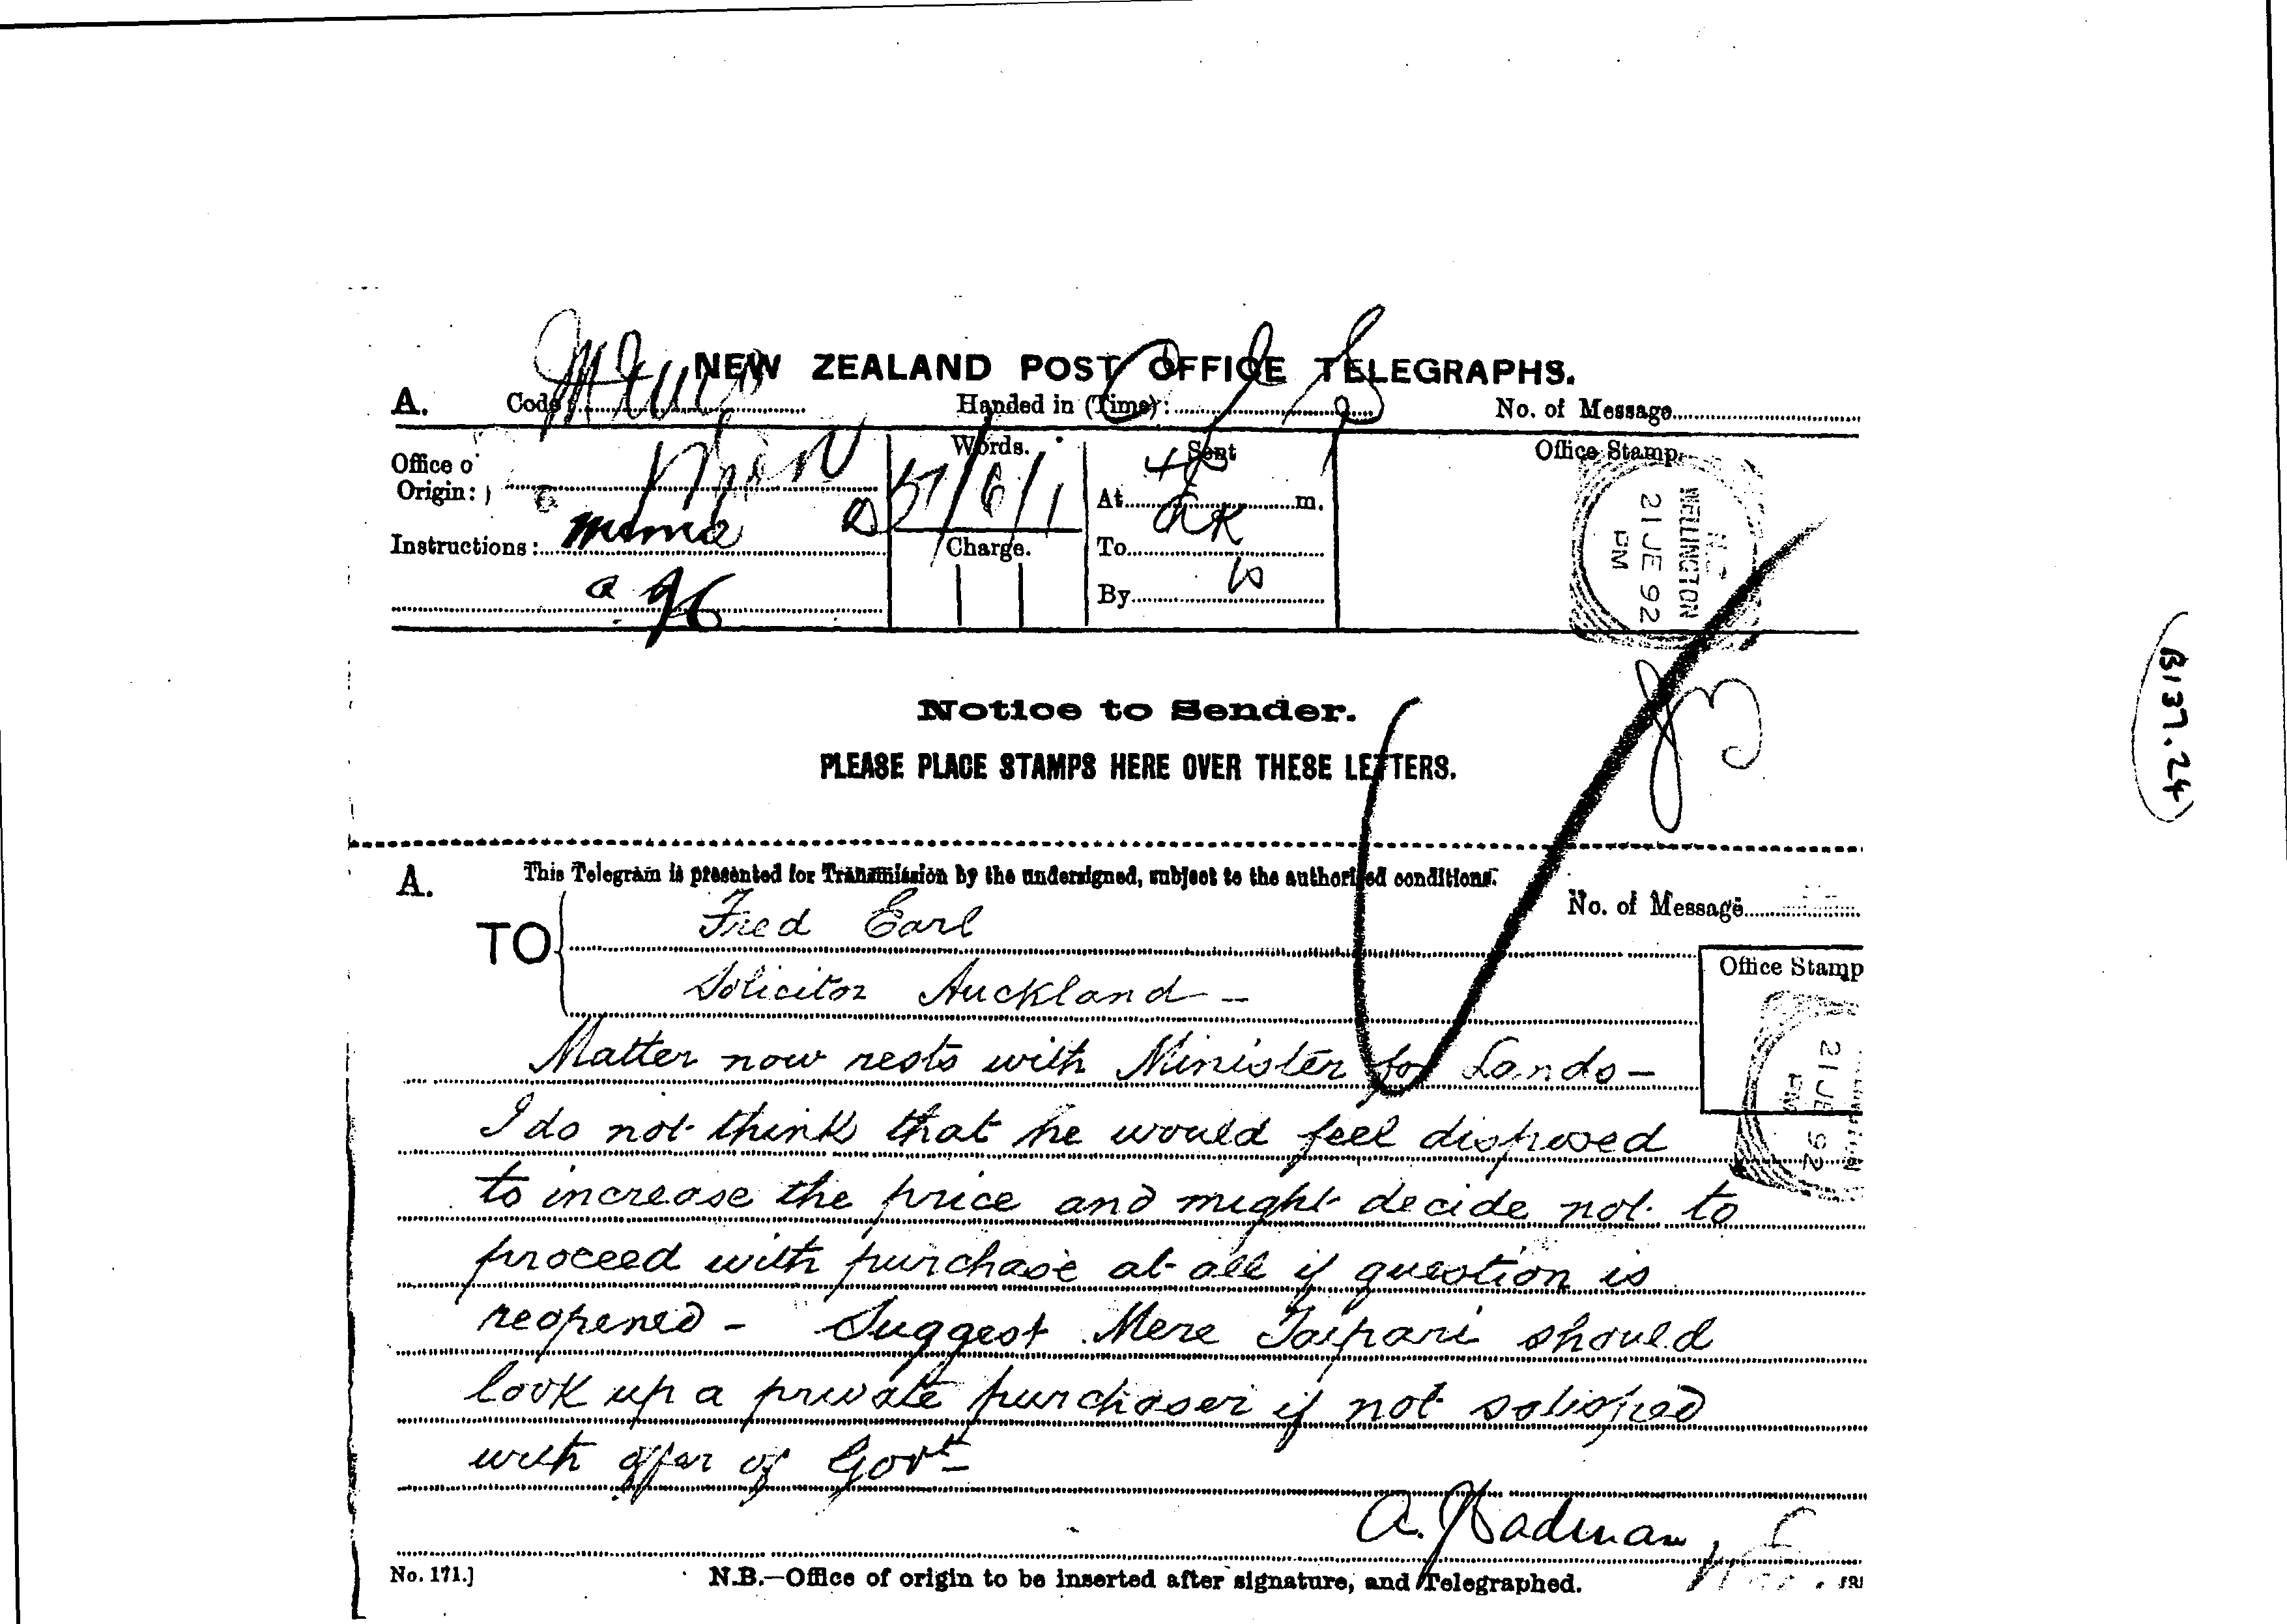 NEW ZEALAND POST OFFICE TELEGRAPHS.
A. Code Handed in (Time): No. of Message
Office o Origin: Words. Sent Office Stamp
At m.
Instructions: Charge. To
By
WELLINGTON
21 JE 92
PM
Notice to Sender.
PLEASE PLACE STAMPS HERE OVER THESE LETTERS.
A. This Telegram is presented for Transmission by the undersigned, subject to the authorised conditions.
No. of Message
TO Fred Earl
Solicitor Auckland -
Office Stamp
21 JE 92
PM
Matter now rests with Minister for Lands -
I do not think that he would feel disposed
to increase the price and might decide not to
proceed with purchase at all if question is
reopened - Suggest Mere Taipari should
look up a private purchaser if not satisfied
with offer of Govt -
A. Cadman
No. 171.] N.B.—Office of origin to be inserted after signature, and Telegraphed.
B137.24